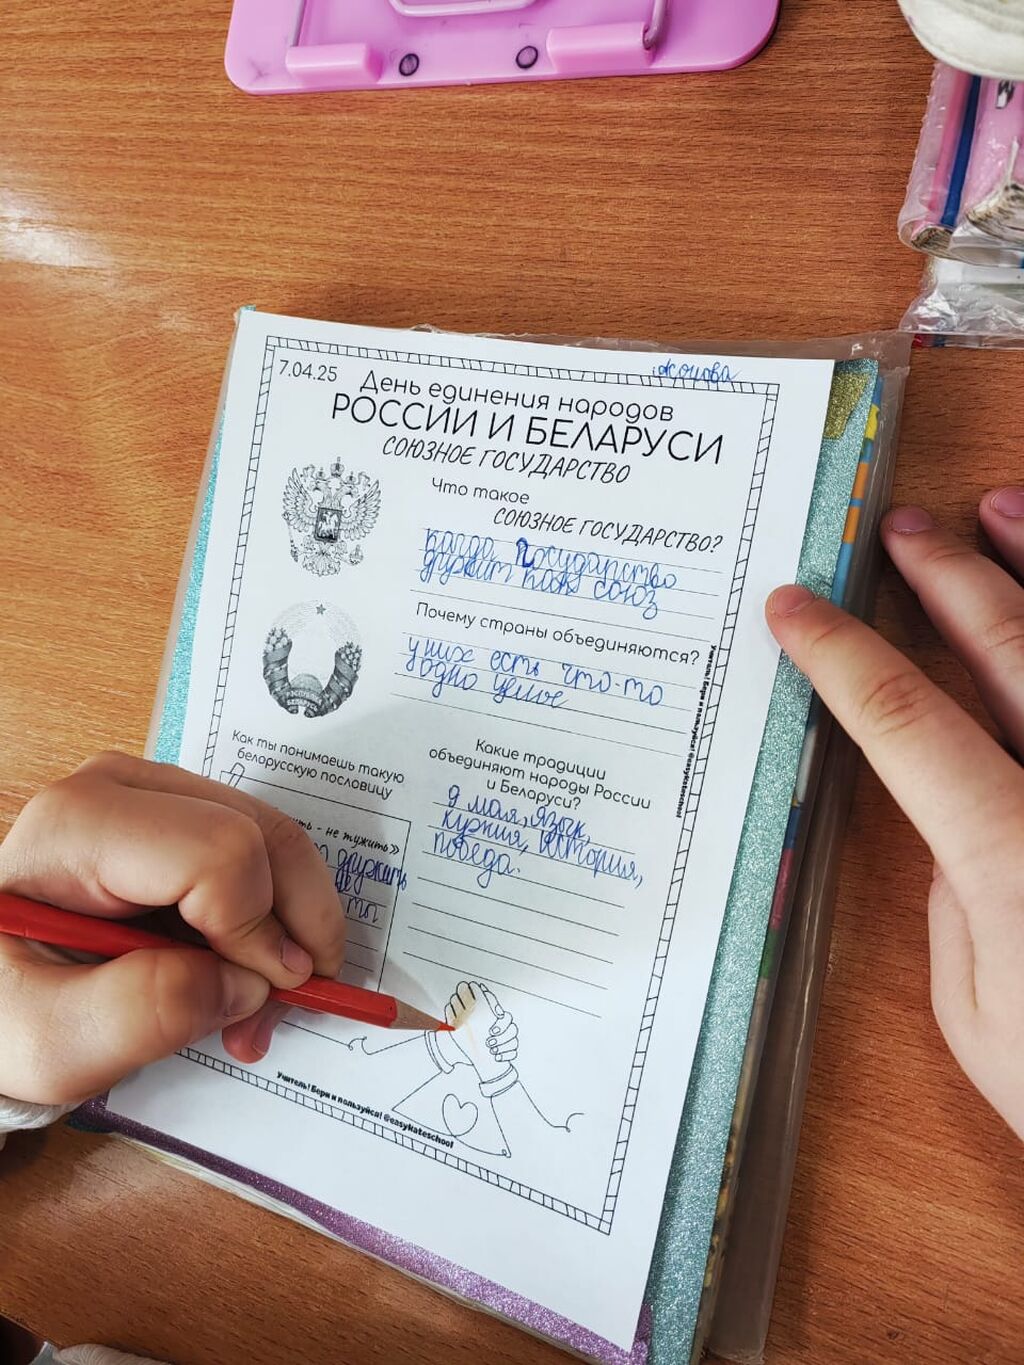 7.04.25
День единения народов
РОССИИ И БЕЛАРУСИ
СОЮЗНОЕ ГОСУДАРСТВО
Что такое
СОЮЗНОЕ ГОСУДАРСТВО?
когда Государство
дружит как союз
Почему страны объединяются?
у них есть что-то
одно целое
Как ты понимаешь такую
белорусскую пословицу
не тужить»
дружить
ты
Какие традиции
объединяют народы России
и Беларуси?
9 мая, язык,
кухня, история,
победа.
Учитель! Бери и пользуйся! @easykateschool
Учитель! Бери и пользуйся! @easykateschool